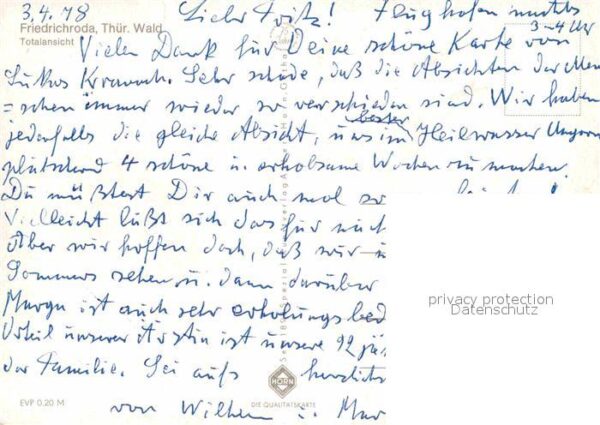 3.4.78 Lieber Fritz! Flughafen nachts
3-4 Uhr
Friedrichroda, Thür. Wald
Totalansicht
Vielen Dank für Deine schöne Karte von
Lukas Sehr schade, daß die Absichten der Men
=schen immer wieder so verschieden sind. Wir haben
jedenfalls die gleiche Absicht, uns im Heilwasser Ungarn
bester
plätschernd 4 schöne u. erholsame Wochen zu machen.
Du müßtest Dir auch mal so
Vielleicht läßt sich das für
Aber wir hoffen doch, daß wir
Sommers sehen u. dann darüber
Marga ist auch sehr erholungsbed
Urteil unserer Ärztin ist unsere 92 jä
der Familie. Sei aufs herzlichs
von Wilhem u. Mar
privacy protection
Datenschutz
HORN
DIE QUALITÄTSKARTE
EVP 0,20 M